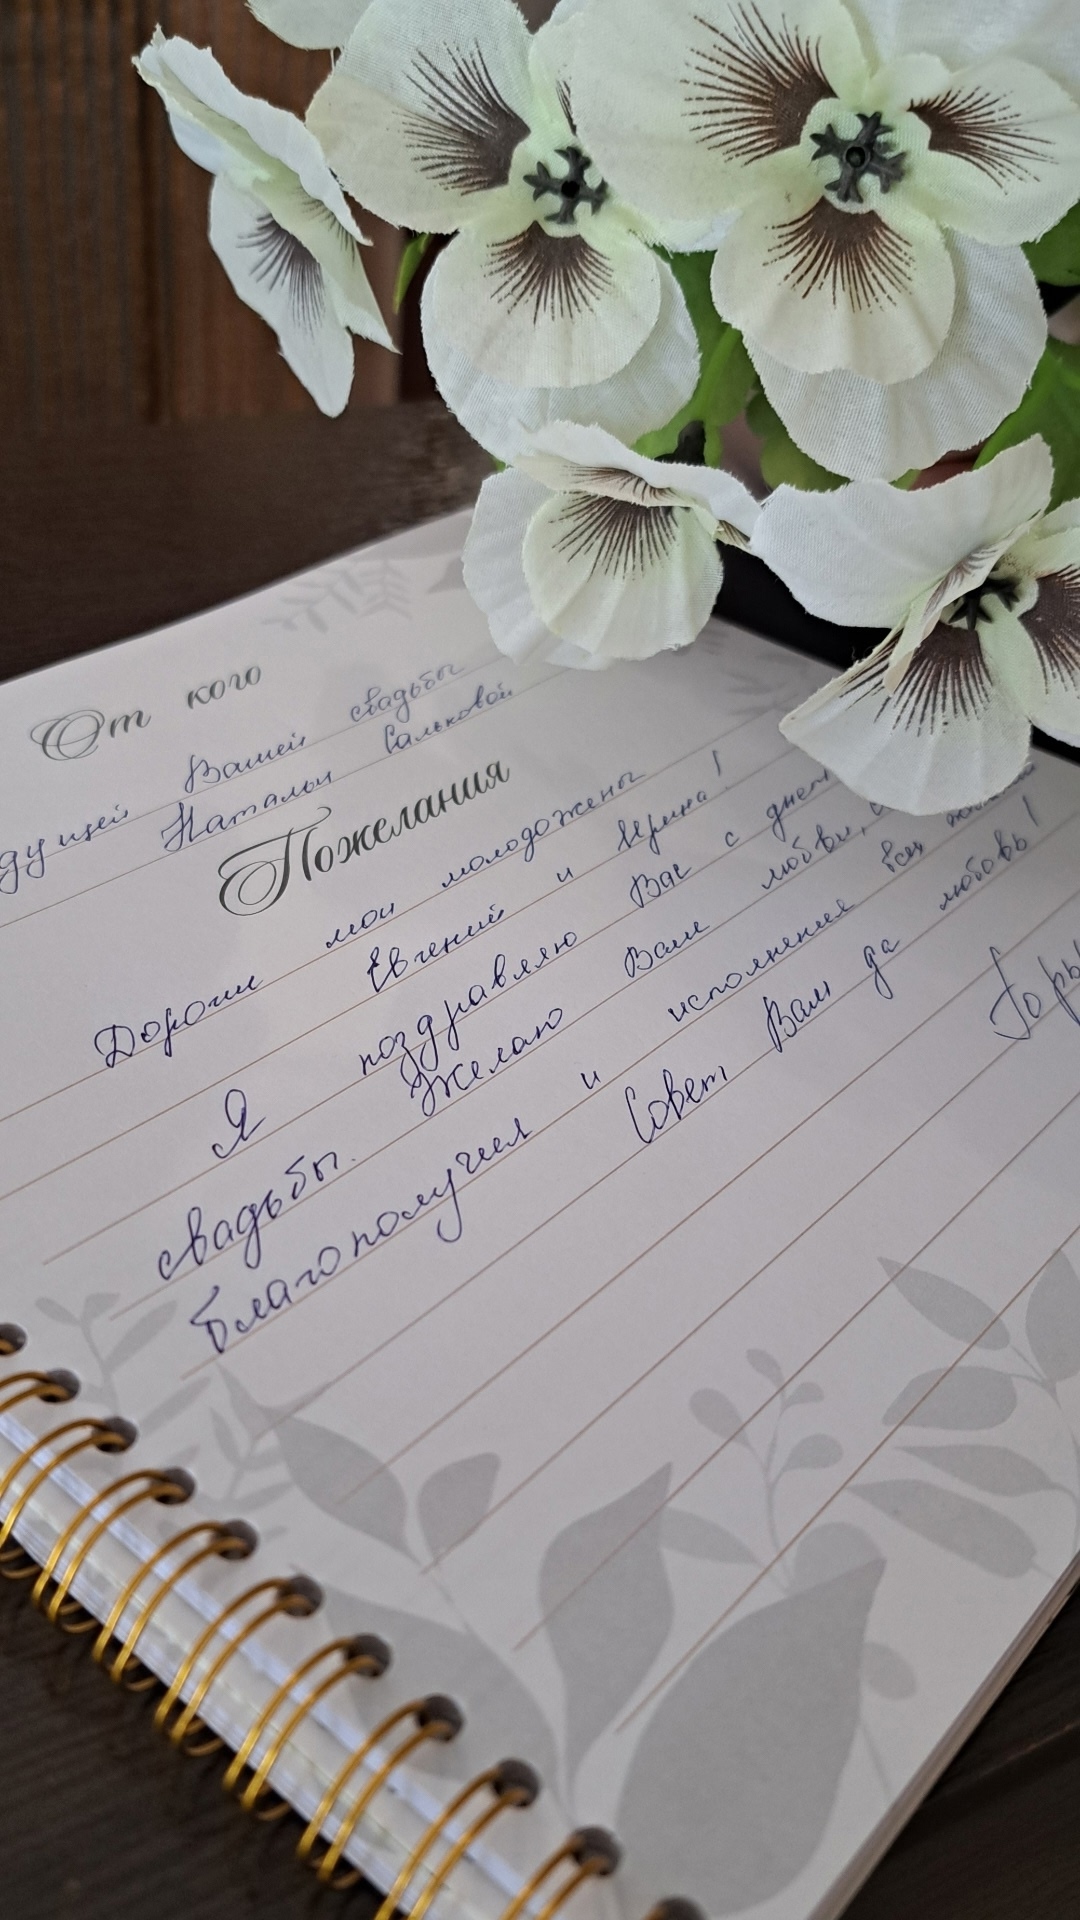 От кого
Вашей свадьбы
Натальи Сальковой
Пожелания
Дорогие мои молодожены
Евгений и Ирина!
Я поздравляю Вас с днем
свадьбы. Желаю Вам любви,
благополучия и исполнения всех
Совет Вам да любовь!